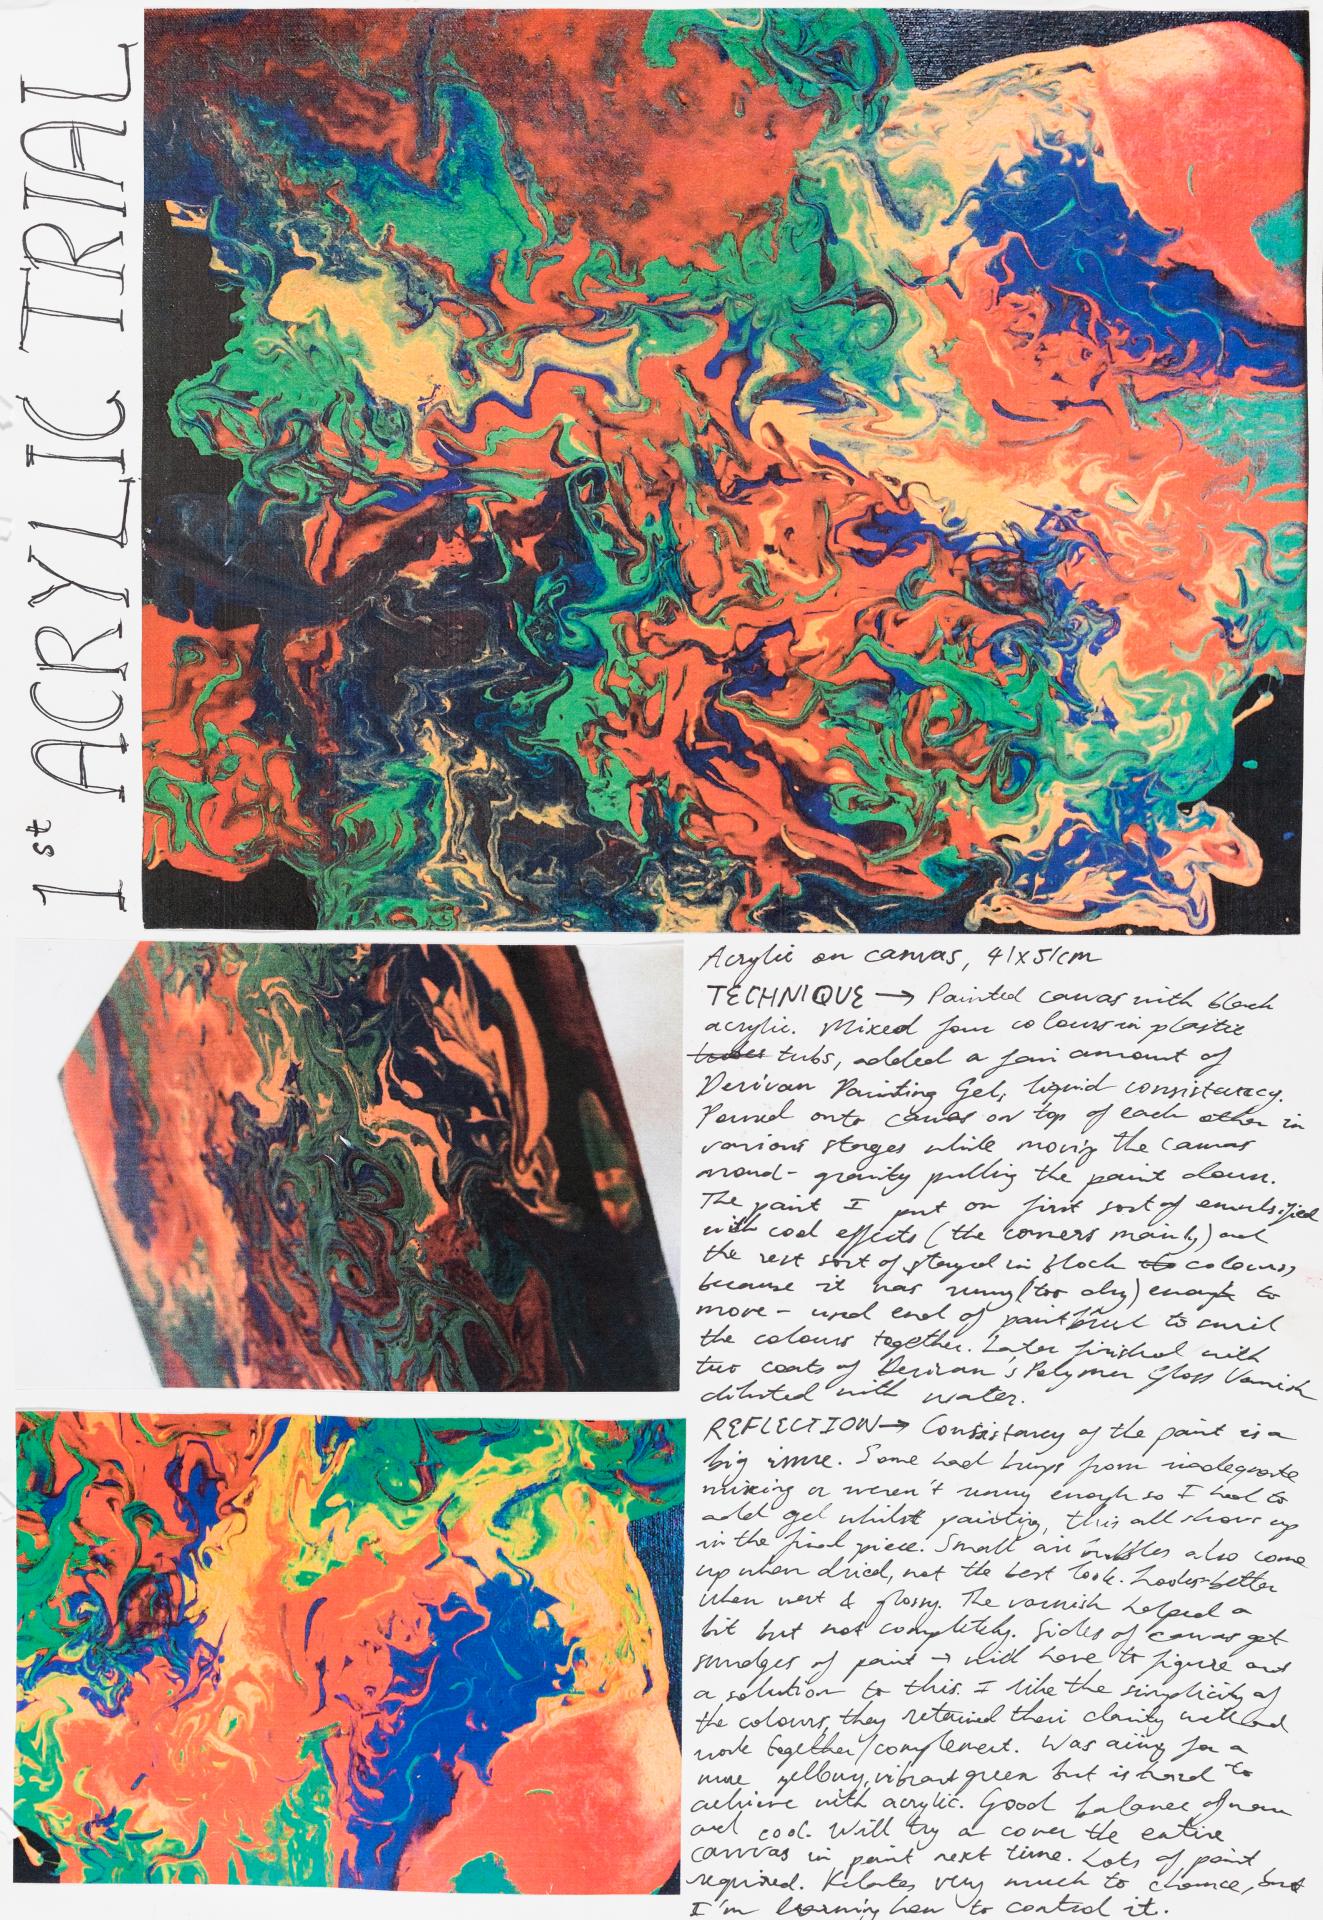 1st ACRYLIC TRIAL
Acrylic on canvas, 41x51cm
TECHNIQUE → Painted canvas with black
acrylic. Mixed four colours in plastic
tubs, added a fair amount of
Derivan Painting Gel, liquid consistancy.
Poured onto canvas on top of each other in
various stages while moving the canvas
around - gravity pulling the paint down.
The paint I put on first sort of emulsified
with cool effects (the corners mainly) and
the rest sort of stayed in block colours,
because it was runny (too dry) enough to
move - used end of paintbrush to swirl
the colours together. Later finished with
two coats of Derivan's Polymer Gloss Varnish
diluted with water.
REFLECTION → Consistancy of the paint is a
big issue. Some had lumps from inadequate
mixing or weren't runny enough so I had to
add gel whilst painting, this all shows up
in the final piece. Small air bubbles also come
up when dried, not the best look. Looks better
when wet & glossy. The varnish helped a
bit but not completely. Sides of canvas get
smudges of paint → will have to figure out
a solution to this. I like the simplicity of
the colours, they retained their clarity well and
work together/complement. Was aiing for a
more yellowy, vibrant green but is hard to
achieve with acrylic. Good balance of warm
and cool. Will try a cover the entire
canvas in paint next time. Lots of paint
required. Relates very much to chance, but
I'm learning how to control it.